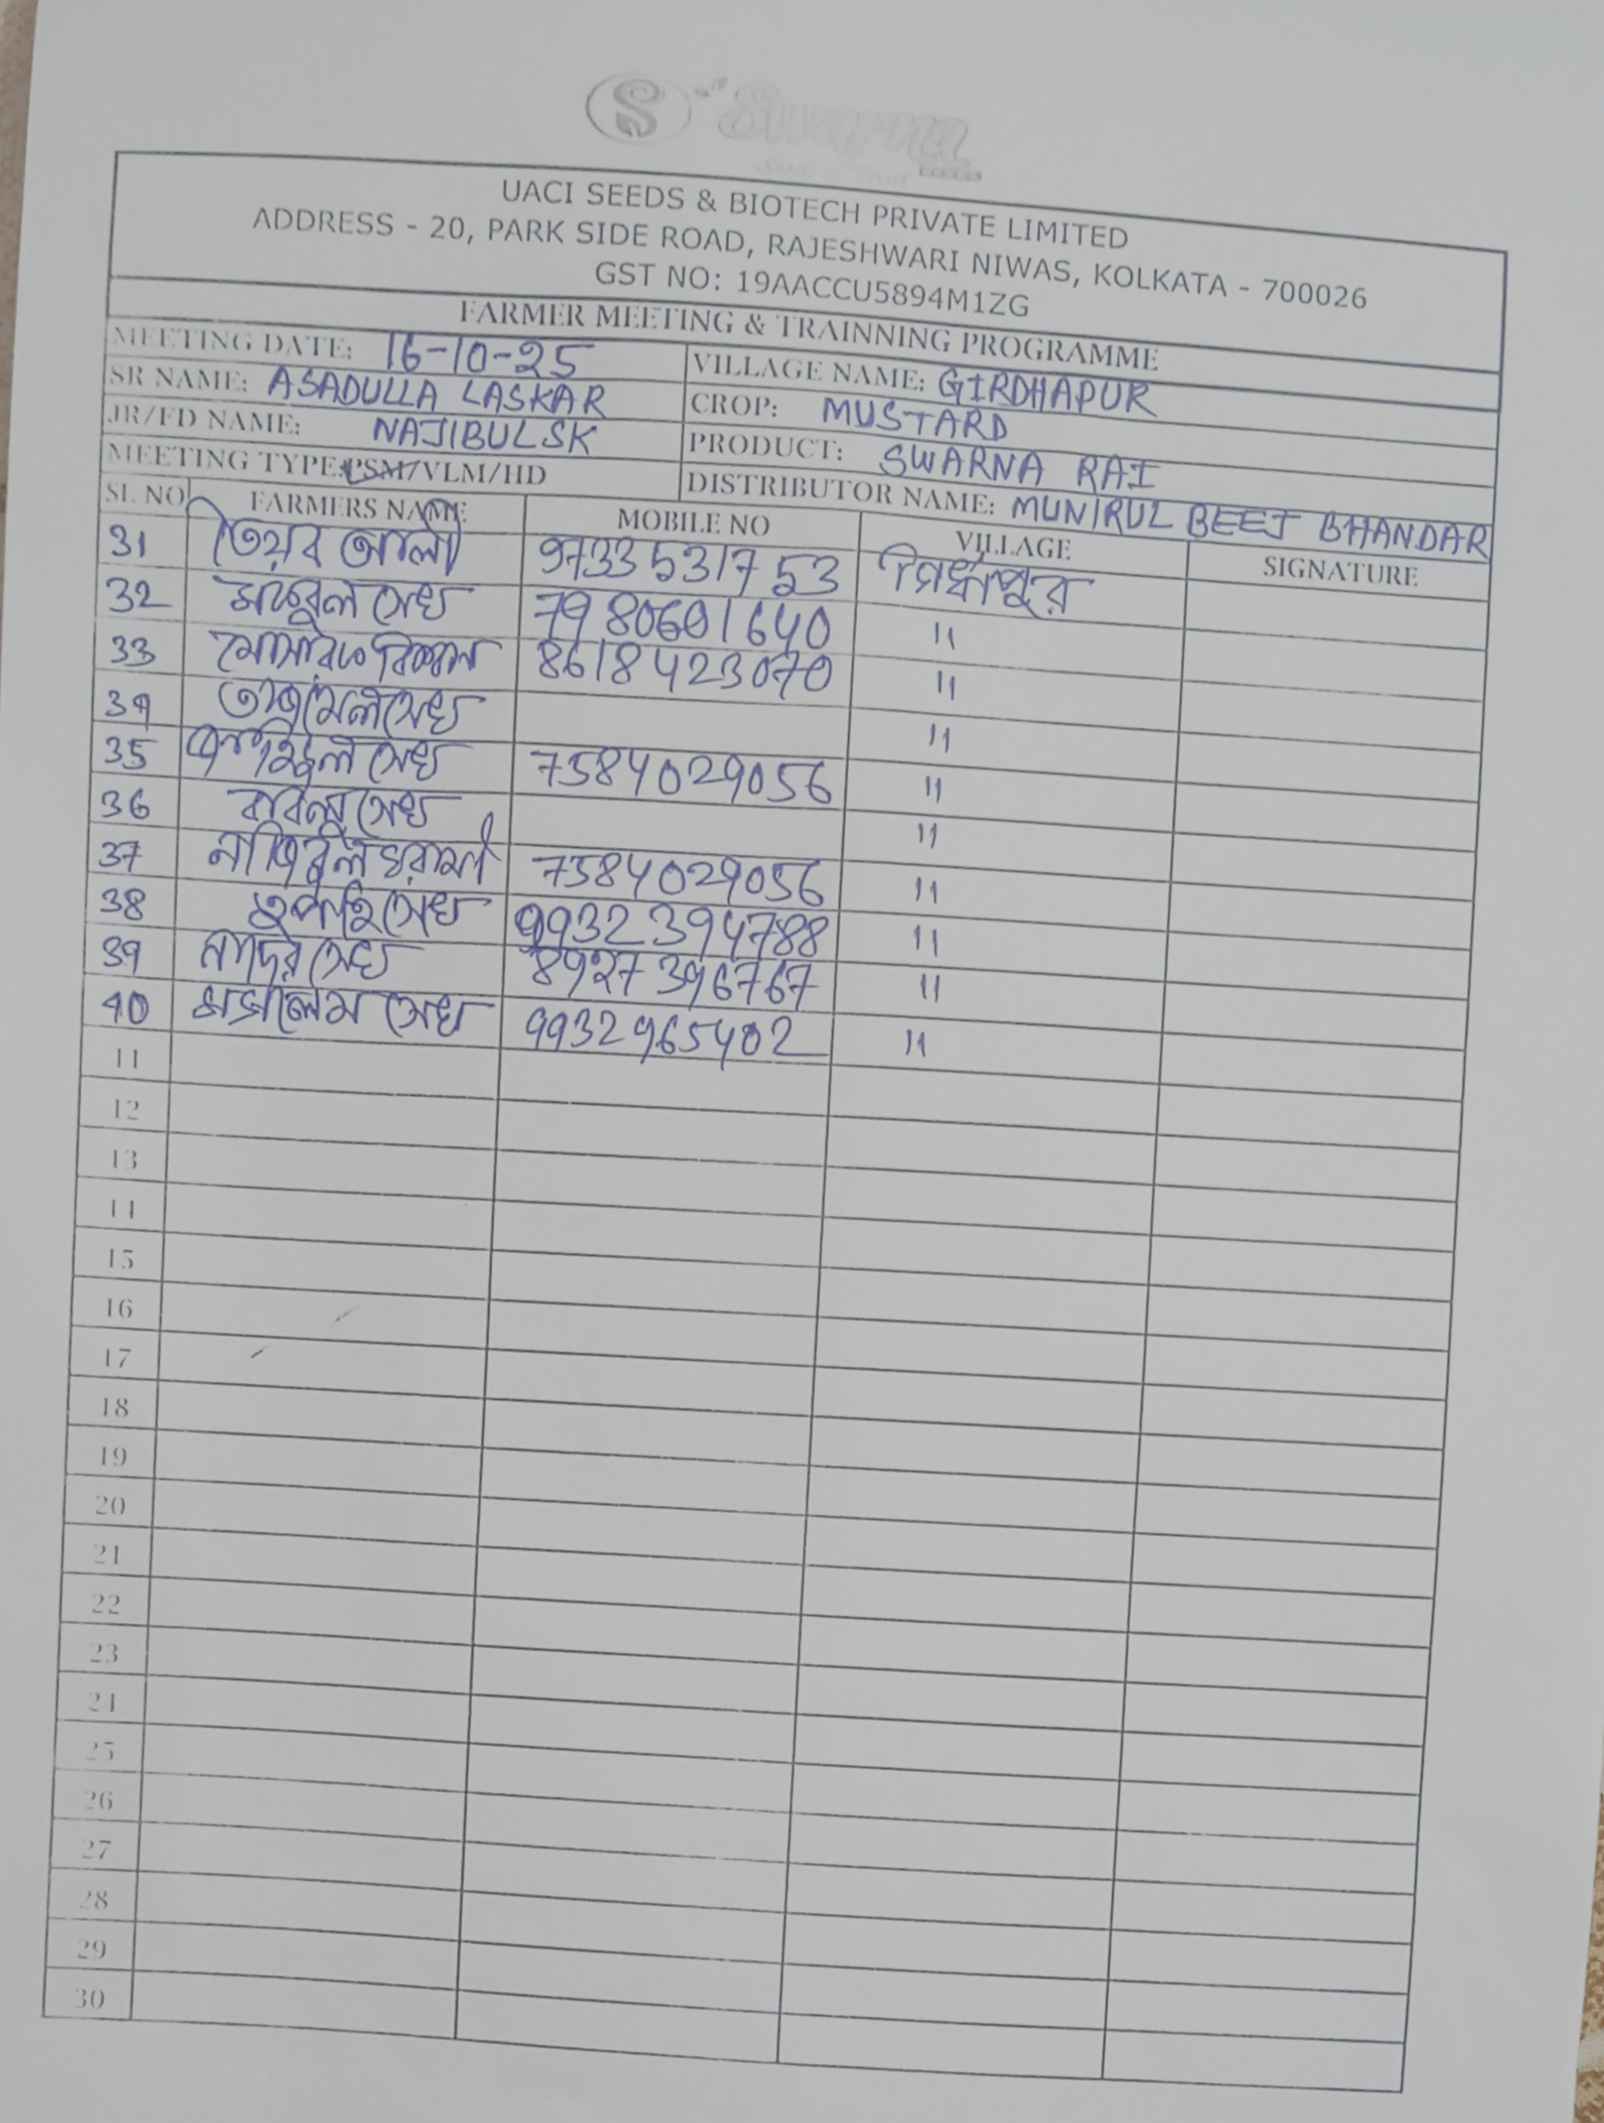 S Swarna
SEEDS
UACI SEEDS & BIOTECH PRIVATE LIMITED
ADDRESS - 20, PARK SIDE ROAD, RAJESHWARI NIWAS, KOLKATA - 700026
GST NO: 19AACCU5894M1ZG
FARMER MEETING & TRAINNING PROGRAMME
MEETING DATE: 16-10-25 VILLAGE NAME: GIRDHAPUR
SR NAME: ASADULLA LASKAR CROP: MUSTARD
JR/FD NAME: NAJIBUL SK PRODUCT: SWARNA RAI
MEETING TYPE: PSM/VLM/HD DISTRIBUTOR NAME: MUNIRUL BEEJ BHANDAR
SL NO FARMERS NAME MOBILE NO VILLAGE SIGNATURE
31 তৈয়ব আলী 9733531753
32 সেখ 7980601640 "
33 8618423070 "
34 সেখ "
35 সেখ 7584029056 "
36 সেখ "
37 নাজিবুল ঘরামী 7584029056 "
38 সেখ 9932394788 "
39 নাদের সেখ 8927396767 "
40 সেখ 9932965402 "
11
12
13
14
15
16
17
18
19
20
21
22
23
24
25
26
27
28
29
30